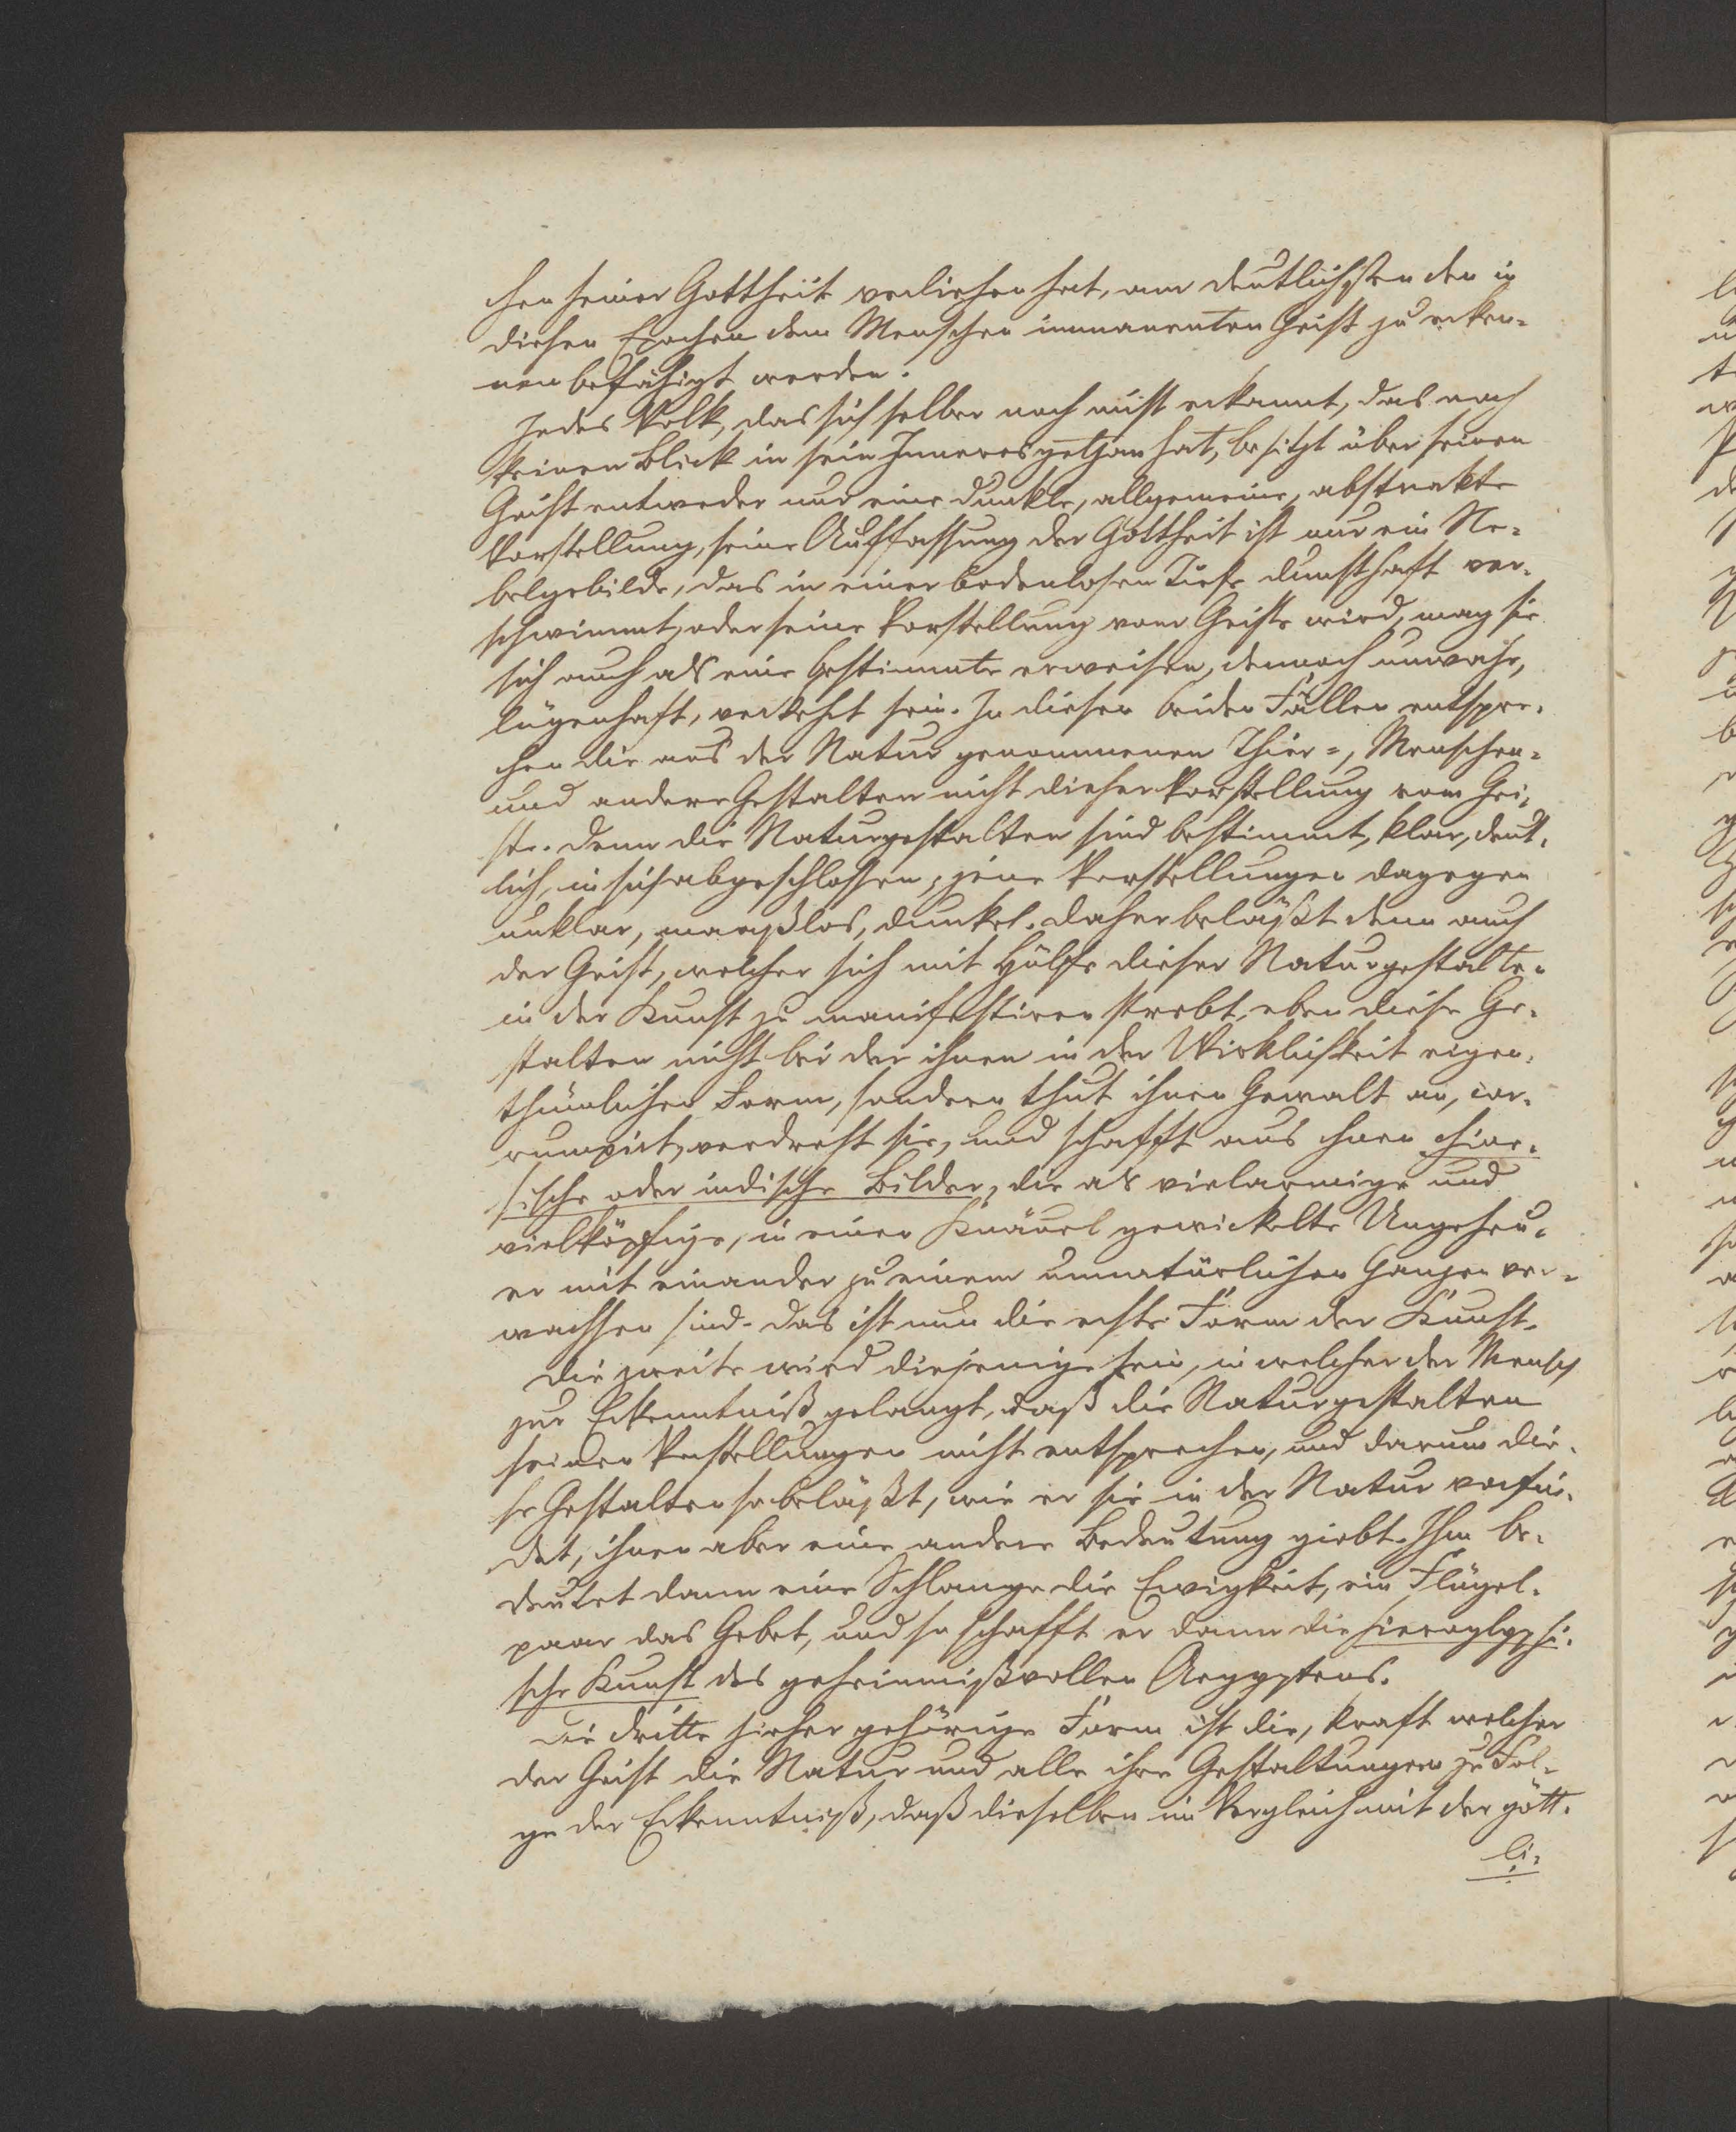 chen seiner Gottheit verliehen hat, am deutlichsten den in
diesen Epochen dem Menschen immanenten Geist zu erken-
nen befähigt werden.
Jedes Volk, das sich selber noch nicht erkannt, das noch
keinen Blick in sein Inneres gethan hat, besitzt über seinen
Geist entweder nur eine dunkle, allgemeine, abstrakte
Vorstellung, seine Auffassung der Gottheit ist nur ein Ne-
belgebilde, das in einer bodenlosen Tiefe dunsthaft ver-
schwimmt, oder seine Vorstellung vom Geiste wird, mag sie
sich auch als eine bestimmte erweisen, dennoch unwahr,
lügenhaft, verkehrt sein. In diesen beiden Fällen entspre-
chen die aus der Natur genommenen Thier-, Menschen-
und andere Gestalten nicht dieser Vorstellung vom Gei-
ste. Denn die Naturgestalten sind bestimmt, klar, deut-
lich, in sich abgeschlossen, jene Vorstellungen dagegen
unklar, maaßlos, dunkel. Daher beläßt denn auch
der Geist, welcher sich mit Hülfe dieser Naturgestalten
in der Kunst zu manifestiren strebt, eben diese Ge-
stalten nicht bei der ihnen in der Wirklichkeit eigen-
thümlichen Form, sondern thut ihnen Gewalt an, cor-
rumpirt, verdreht sie, und schafft aus ihnen chine-
sische oder indische Bilder, die als vielarmige und
vielköpfige, in einen Knäuel gewickelte Ungeheu-
er mit einander zu einem unnatürlichen Ganzen ver-
wachsen sind. Das ist nun die erste Form der Kunst.
Die zweite wird diejenige sein, in welcher der Mensch
zur Erkenntniß gelangt, daß die Naturgestalten
seinen Vorstellungen nicht entsprechen, und darum die-
se Gestalten so beläßt, wie er sie in der Natur vorfin-
det, ihnen aber eine andere Bedeutung giebt. Ihm be-
deutet dann eine Schlange die Ewigkeit, ein Flügel-
paar das Gebet, und so schafft er dann die hieroglyphi-
sche Kunst des geheimnißvollen Aegyptens.
Die dritte hieher gehörige Form ist die, kraft welcher
der Geist die Natur und alle ihre Gestaltungen zu Fol-
ge der Erkenntniß, daß dieselben im Vergleich mit der gött-
li-